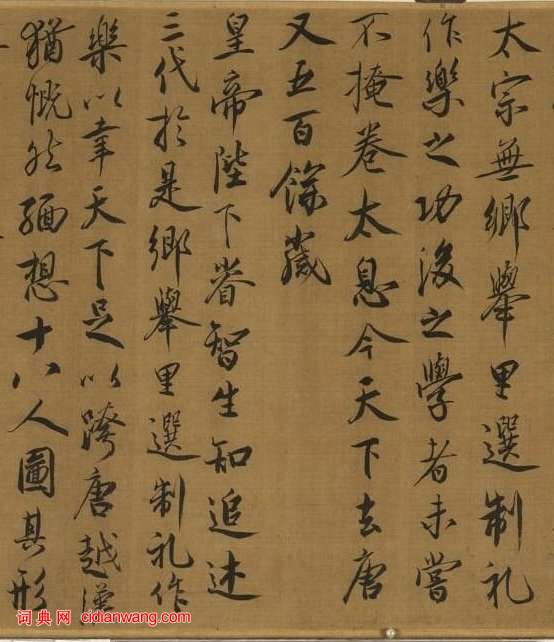 太宗無鄉舉里選制礼
作樂之功後之學者未嘗
不掩卷太息今天下去唐
又五百餘歲
皇帝陛下睿智生知追述
三代於是鄉舉里選制礼作
樂以幸天下足以跨唐越漢
猶慨然緬想十八人圖其形
词典网 cidianwang.com